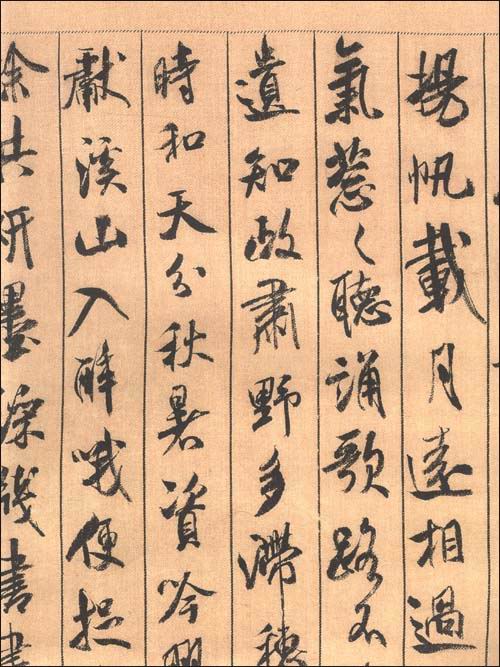 揚帆載月遠相過
氣葱々聽誦歌路不
遺知政肅野多滯穗
時和天分秋暑資吟
獻溪山入醉哦便捉
共研墨綵牋書